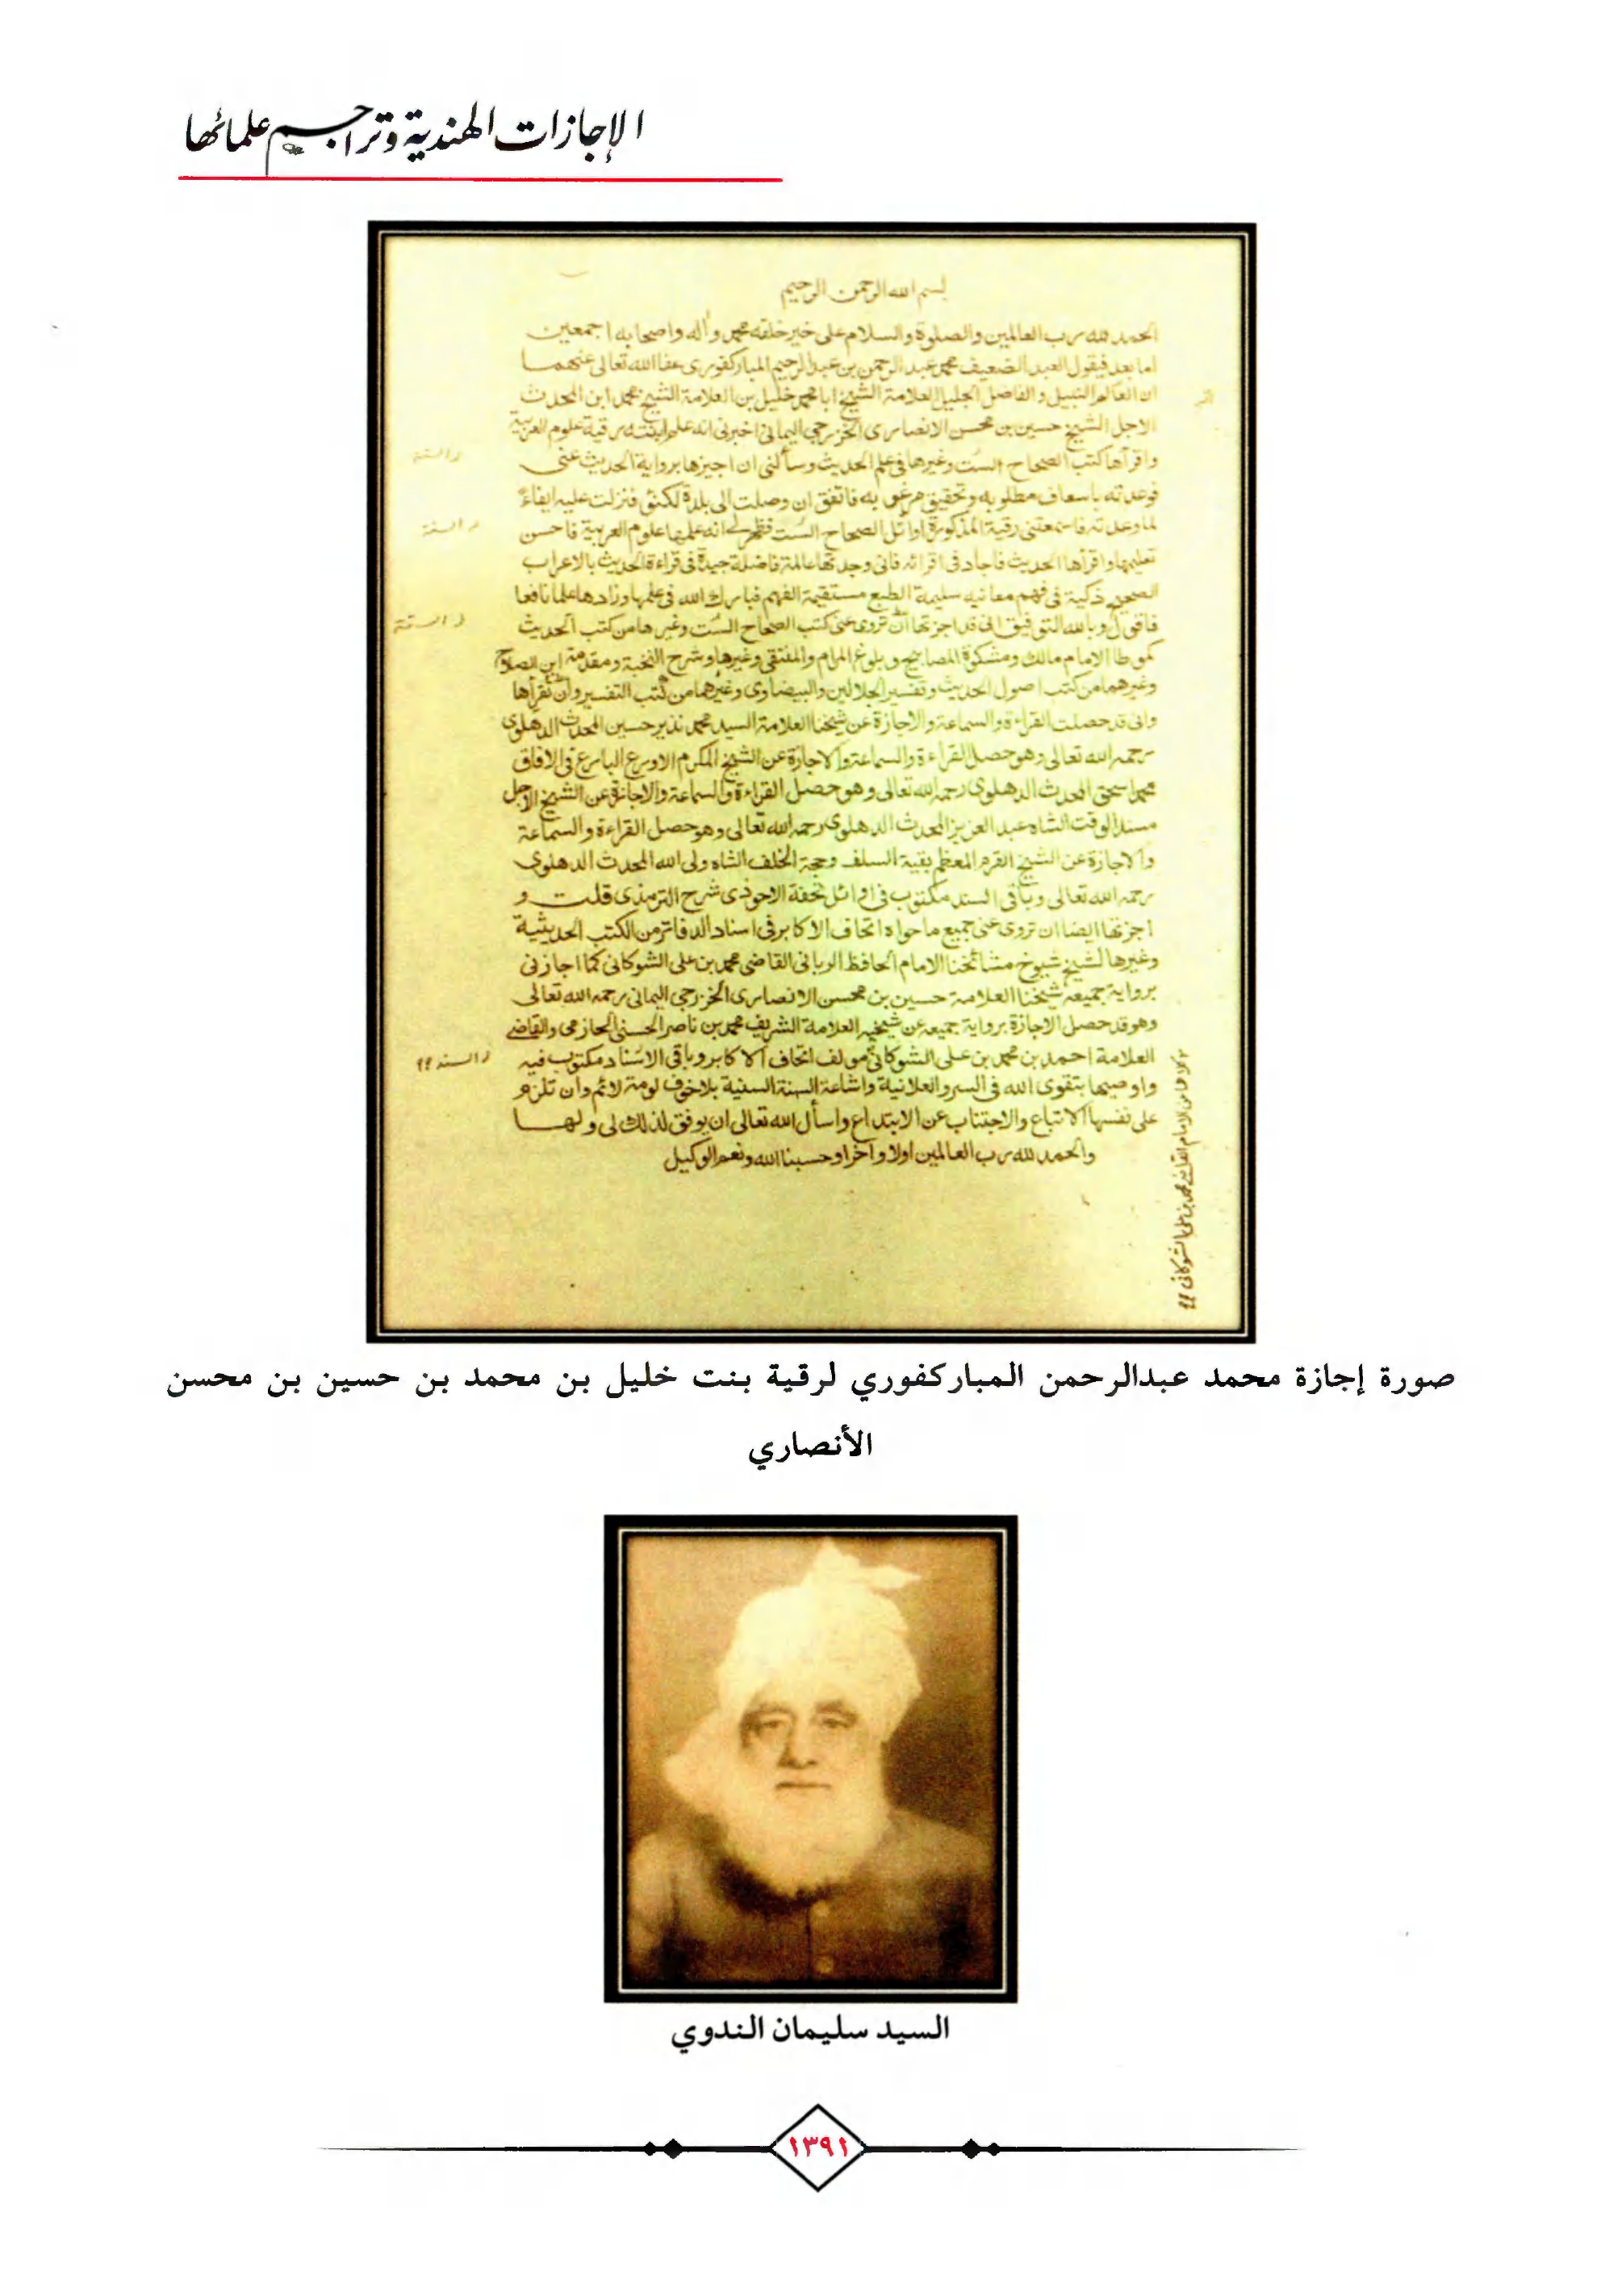 الإجازات الهندية وتراجم علمائها
بسم الله الرحمن الرحيم
الحمد لله رب العالمين والصلوة والسلام على خير خلقه محمد وآله واصحابه اجمعين
اما بعد فيقول العبد الضعيف محمد عبد الرحمن بن عبد الرحيم المباركفوري عفا الله تعالى عنهما
ان العالم النبيل والفاضل الجليل العلامة الشيخ ابا محمد خليل بن العلامة الشيخ محمد ابن المحدث
الاجل الشيخ حسين بن محسن الانصاري الخزرجي اليماني اخبرني انه علم ابنته رقية علوم العربية
واقرأها كتب الصحاح الست وغيرها في علم الحديث وسألني ان اجيزها برواية الحديث عني
فوعدته باسعاف مطلوبه وتحقيق مرغوبه فاتفق ان وصلت الى بلدة لكنؤ فنزلت عليه ايفاء
لما وعدته فاسمعتني رقية المذكورة اوائل الصحاح الست فظهر لي انه علمها علوم العربية فاحسن
تعليمها واقرأها الحديث فاجاد في اقرائه فاني وجدتها عالمة فاضلة جيدة في قراءة الحديث بالاعراب
الصحيح ذكية في فهم معانيه سليمة الطبع مستقيمة الفهم فبارك الله في علمها وزادها علما نافعا
فاقول وبالله التوفيق اني قد اجزتها ان تروي عني كتب الصحاح الست وغيرها من كتب الحديث
كموطا الامام مالك ومشكوة المصابيح وبلوغ المرام والمنتقى وغيرها وشرح النخبة ومقدمة ابن الصلاح
وغيرهما من كتب اصول الحديث وتفسير الجلالين والبيضاوي وغيرهما من كتب التفسير وان تقرأها
واني قد حصلت القراءة والسماعة والاجازة عن شيخنا العلامة السيد محمد نذير حسين المحدث الدهلوي
رحمه الله تعالى وهو حصل القراءة والسماعة والاجازة عن الشيخ المكرم الاورع البارع في الافاق
محمد اسحق المحدث الدهلوي رحمه الله تعالى وهو حصل القراءة والسماعة والاجازة عن الشيخ الاجل
مسند الوقت الشاه عبد العزيز المحدث الدهلوي رحمه الله تعالى وهو حصل القراءة والسماعة
والاجازة عن الشيخ القرم المعظم بقية السلف وحجة الخلف الشاه ولي الله المحدث الدهلوي
رحمه الله تعالى وباقي السند مكتوب في اوائل تحفة الاحوذي شرح الترمذي قلت و
اجزتها ايضا ان تروي عني جميع ما حواه اتحاف الاكابر في اسناد الدفاتر من الكتب الحديثية
وغيرها لشيخ شيوخ مشائخنا الامام الحافظ الرباني القاضي محمد بن علي الشوكاني كما اجازني
برواية جميعه شيخنا العلامة حسين بن محسن الانصاري الخزرجي اليماني رحمه الله تعالى
وهو قد حصل الاجازة برواية جميعه عن شيخيه العلامة الشريف محمد بن ناصر الحسني الحازمي والقاضي
العلامة احمد بن محمد بن علي الشوكاني مولف اتحاف الاكابر وباقي الاسناد مكتوب فيه
واوصيها بتقوى الله في السر والعلانية واشاعة السنة السنية بلا خوف لومة لائم وان تلزم
على نفسها الاتباع والاجتناب عن الابتداع واسأل الله تعالى ان يوفق لذلك لي ولها
والحمد لله رب العالمين اولا وآخرا وحسبنا الله ونعم الوكيل
صورة إجازة محمد عبدالرحمن المباركفوري لرقية بنت خليل بن محمد بن حسين بن محسن
الأنصاري
السيد سليمان الندوي
١٣٩١